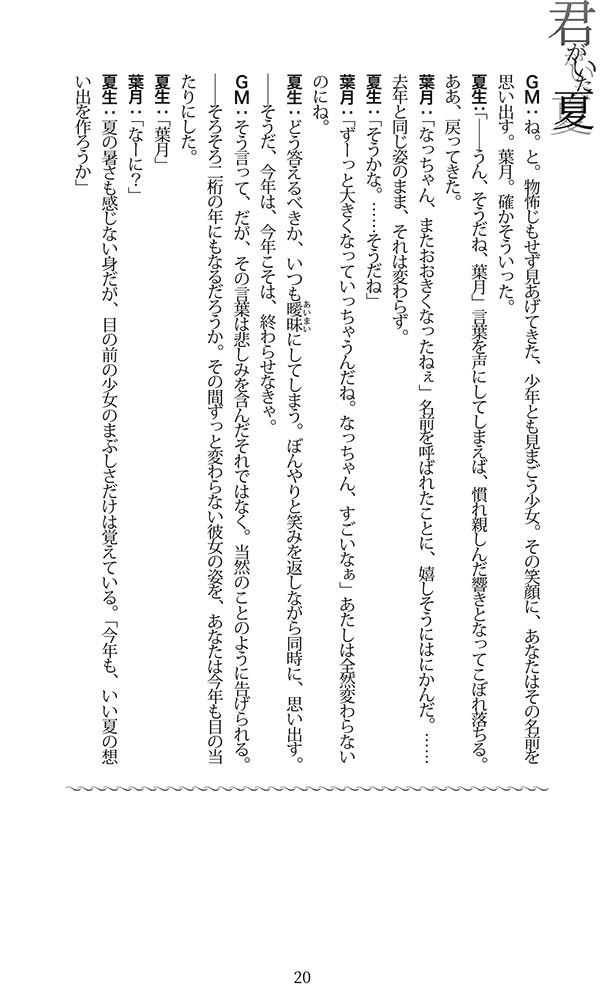 君がいた夏
GM：ね。と。物怖じもせず見あげてきた、少年とも見まごう少女。その笑顔に、あなたはその名前を
思い出す。葉月。確かそういった。
夏生：「――うん、そうだね、葉月」言葉を声にしてしまえば、慣れ親しんだ響きとなってこぼれ落ちる。
ああ、戻ってきた。
葉月：「なっちゃん、またおおきくなったねぇ」名前を呼ばれたことに、嬉しそうにはにかんだ。……
去年と同じ姿のまま、それは変わらず。
夏生：「そうかな。……そうだね」
葉月：「ずーっと大きくなっていっちゃうんだね。なっちゃん、すごいなぁ」あたしは全然変わらない
のにね。
夏生：どう答えるべきか、いつも曖昧にしてしまう。ぼんやりと笑みを返しながら同時に、思い出す。
あいまい
――そうだ、今年は、今年こそは、終わらせなきゃ。
GM：そう言って、だが、その言葉は悲しみを含んだそれではなく。当然のことのように告げられる。
――そろそろ二桁の年にもなるだろうか。その間ずっと変わらない彼女の姿を、あなたは今年も目の当
たりにした。
夏生：「葉月」
葉月：「なーに？」
夏生：夏の暑さも感じない身だが、目の前の少女のまぶしさだけは覚えている。「今年も、いい夏の想
い出を作ろうか」
20